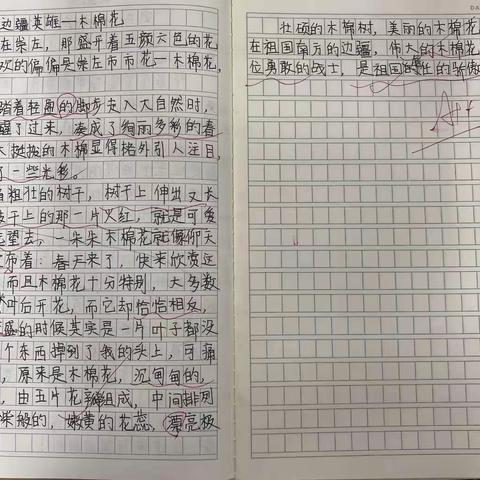 边疆英雄—木棉花
在崇左，那盛开着五颜六色的花
欢的偏偏是崇左市市花—木棉花，
踏着轻盈的脚步走入大自然时，
醒了过来，凑成了绚丽多彩的春
大挺拔的木棉显得格外引人注目，
了一些光彩。
粗壮的树干，树干上伸出又长
枝干上的那一片火红，就是可爱
望去，一朵朵木棉花就像仰天
着：春天来了，快来欣赏这
而且木棉花十分特别，大多数
叶后开花，而它却恰恰相反，
盛的时候其实是一片叶子都没
个东西掉到了我的头上，可痛
，原来是木棉花，沉甸甸的，
，由五片花瓣组成，中间排列
般的，嫩黄的花蕊，漂亮极
壮硕的木棉树，美丽的木棉花
在祖国南方的边疆，伟大的木棉花
位勇敢的战士，是祖国的骄傲
A++